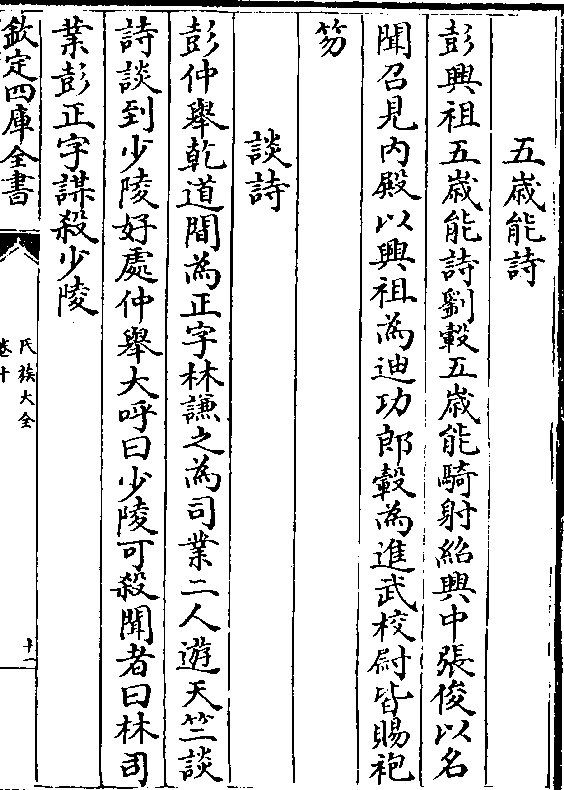 五歳能詩
彭興祖五歳能詩劉轂五歳能騎射紹興中張俊以名
聞召見内殿以興祖為迪功郎轂為進武校尉皆賜袍
笏
談詩
彭仲舉乾道間為正字林謙之為司業二人遊天竺談
詩談到少陵好處仲舉大呼曰少陵可殺聞者曰林司
業彭正字謀殺少陵
欽定四庫全書
氏族大全
卷十
十二